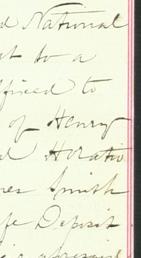 d National
t to a
ffixed to
of Henry
d Horatio
es Smith
fe Deposit